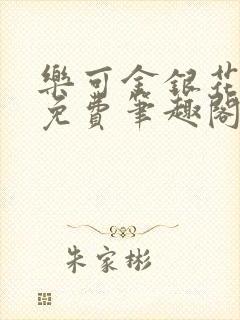 樂可金銀花
免費筆趣閣
朱家彬